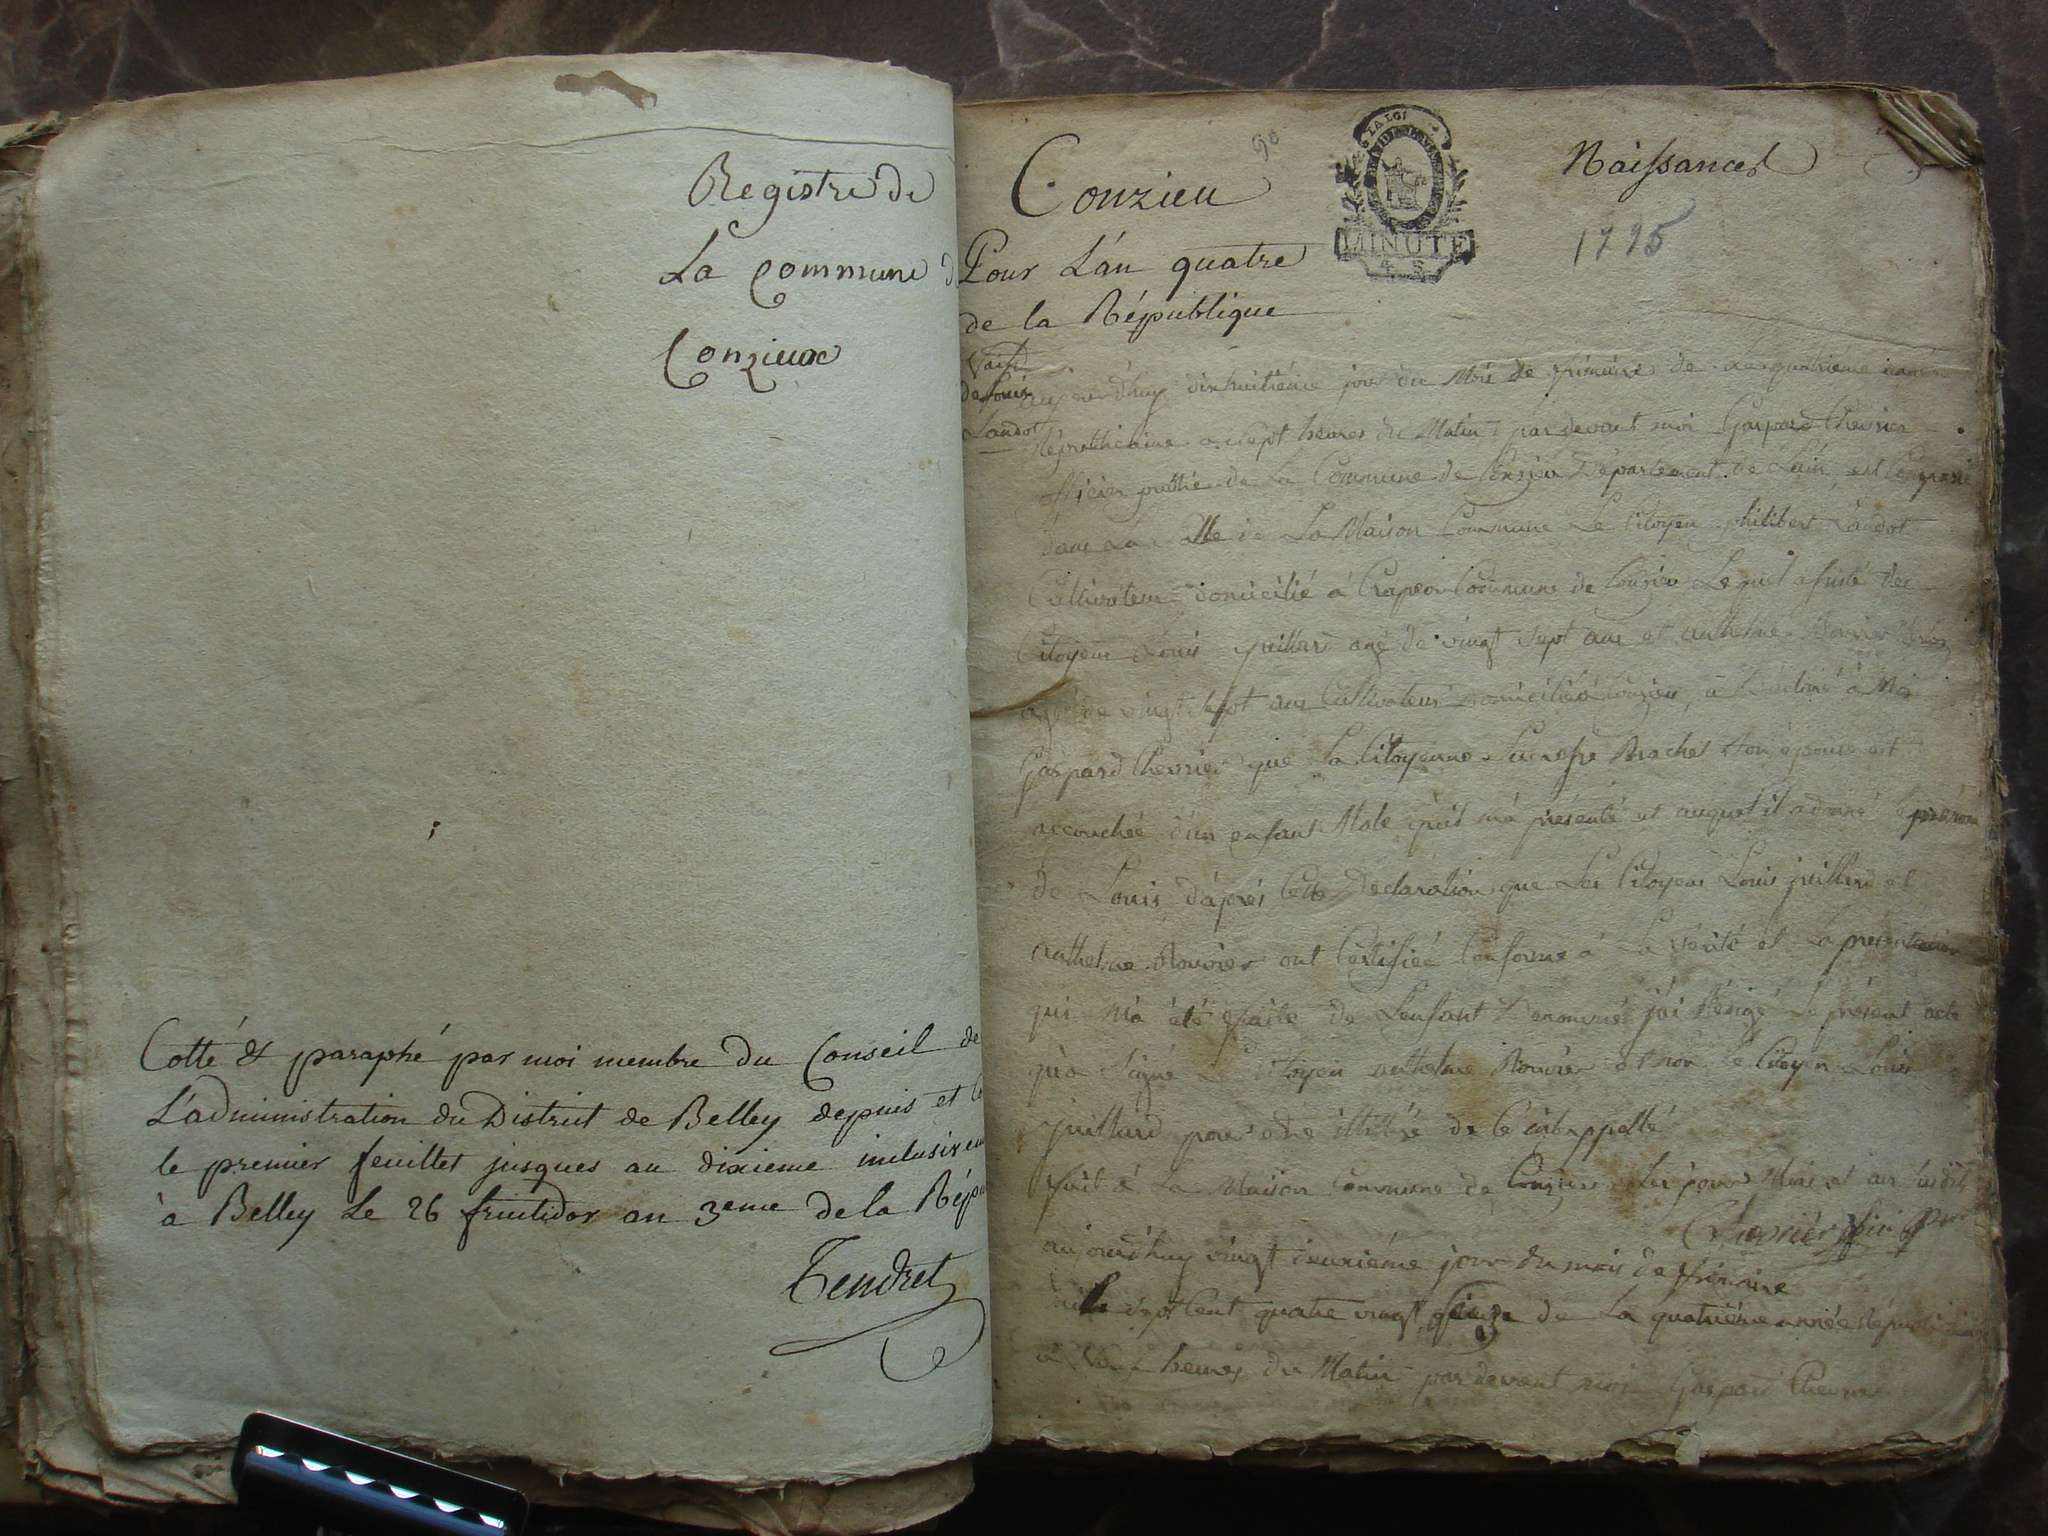 Registre de
La commune
Conzieux
Cotté & paraphé par moi membre du Conseil de
L'administration du District de Belley depuis et
le premier feuillet jusques au dixieme inclusivem
à Belley le 26 fructidor an 3eme de la Répu
Tendret
90
Conzieu
LA LOI
MINUTE
Naissances
1795
Pour L'an quatre
de la République
de Louis
Landot
aujourd'huy dixhuitiéme jour du Mois de frimaire de La quatriéme année
Républicaine a sept heures du Matin par devant moi Gaspard Chevrier
officier public de La Commune de Conzieu Département de L'ain, est Comparu
dans La salle de La Maison Commune Le Citoyen philibert Landot
Cultivateur domicilié à Crapeou Commune de Conzieu Lequel assisté des
Citoyens Louis juillard agé de vingt sept ans et anthelme Rouvier
agé de vingt sept ans Cultivateurs domiciliés à Conzieu, a déclaré à Moi
Gaspard Chevrier que La Citoyenne Brachet son épouse est
accouchée d'un enfant Male qu'il m'a présenté et auquel il a donné le prénom
de Louis d'après Cette Déclaration que Les Citoyens Louis juillard et
anthelme Rouvier ont Certifiée Conforme à La vérité et La présentation
qui M'a été faite de L'enfant Dénommé j'ai Rédigé Le présent acte
qu'a signé Le Citoyen anthelme Rouvier et non Le Citoyen Louis
juillard pour être illitéré de Ce
fait à La Maison Commune de Conzieu Les jours Mois et an susdits
Chevrier
aujourd'huy vingt deuxiéme jour du mois de frimaire
mille sept Cent quatre vingt quinze de La quatriéme année Républicaine
à heures du Matin par devant moi Gaspard Chevrier